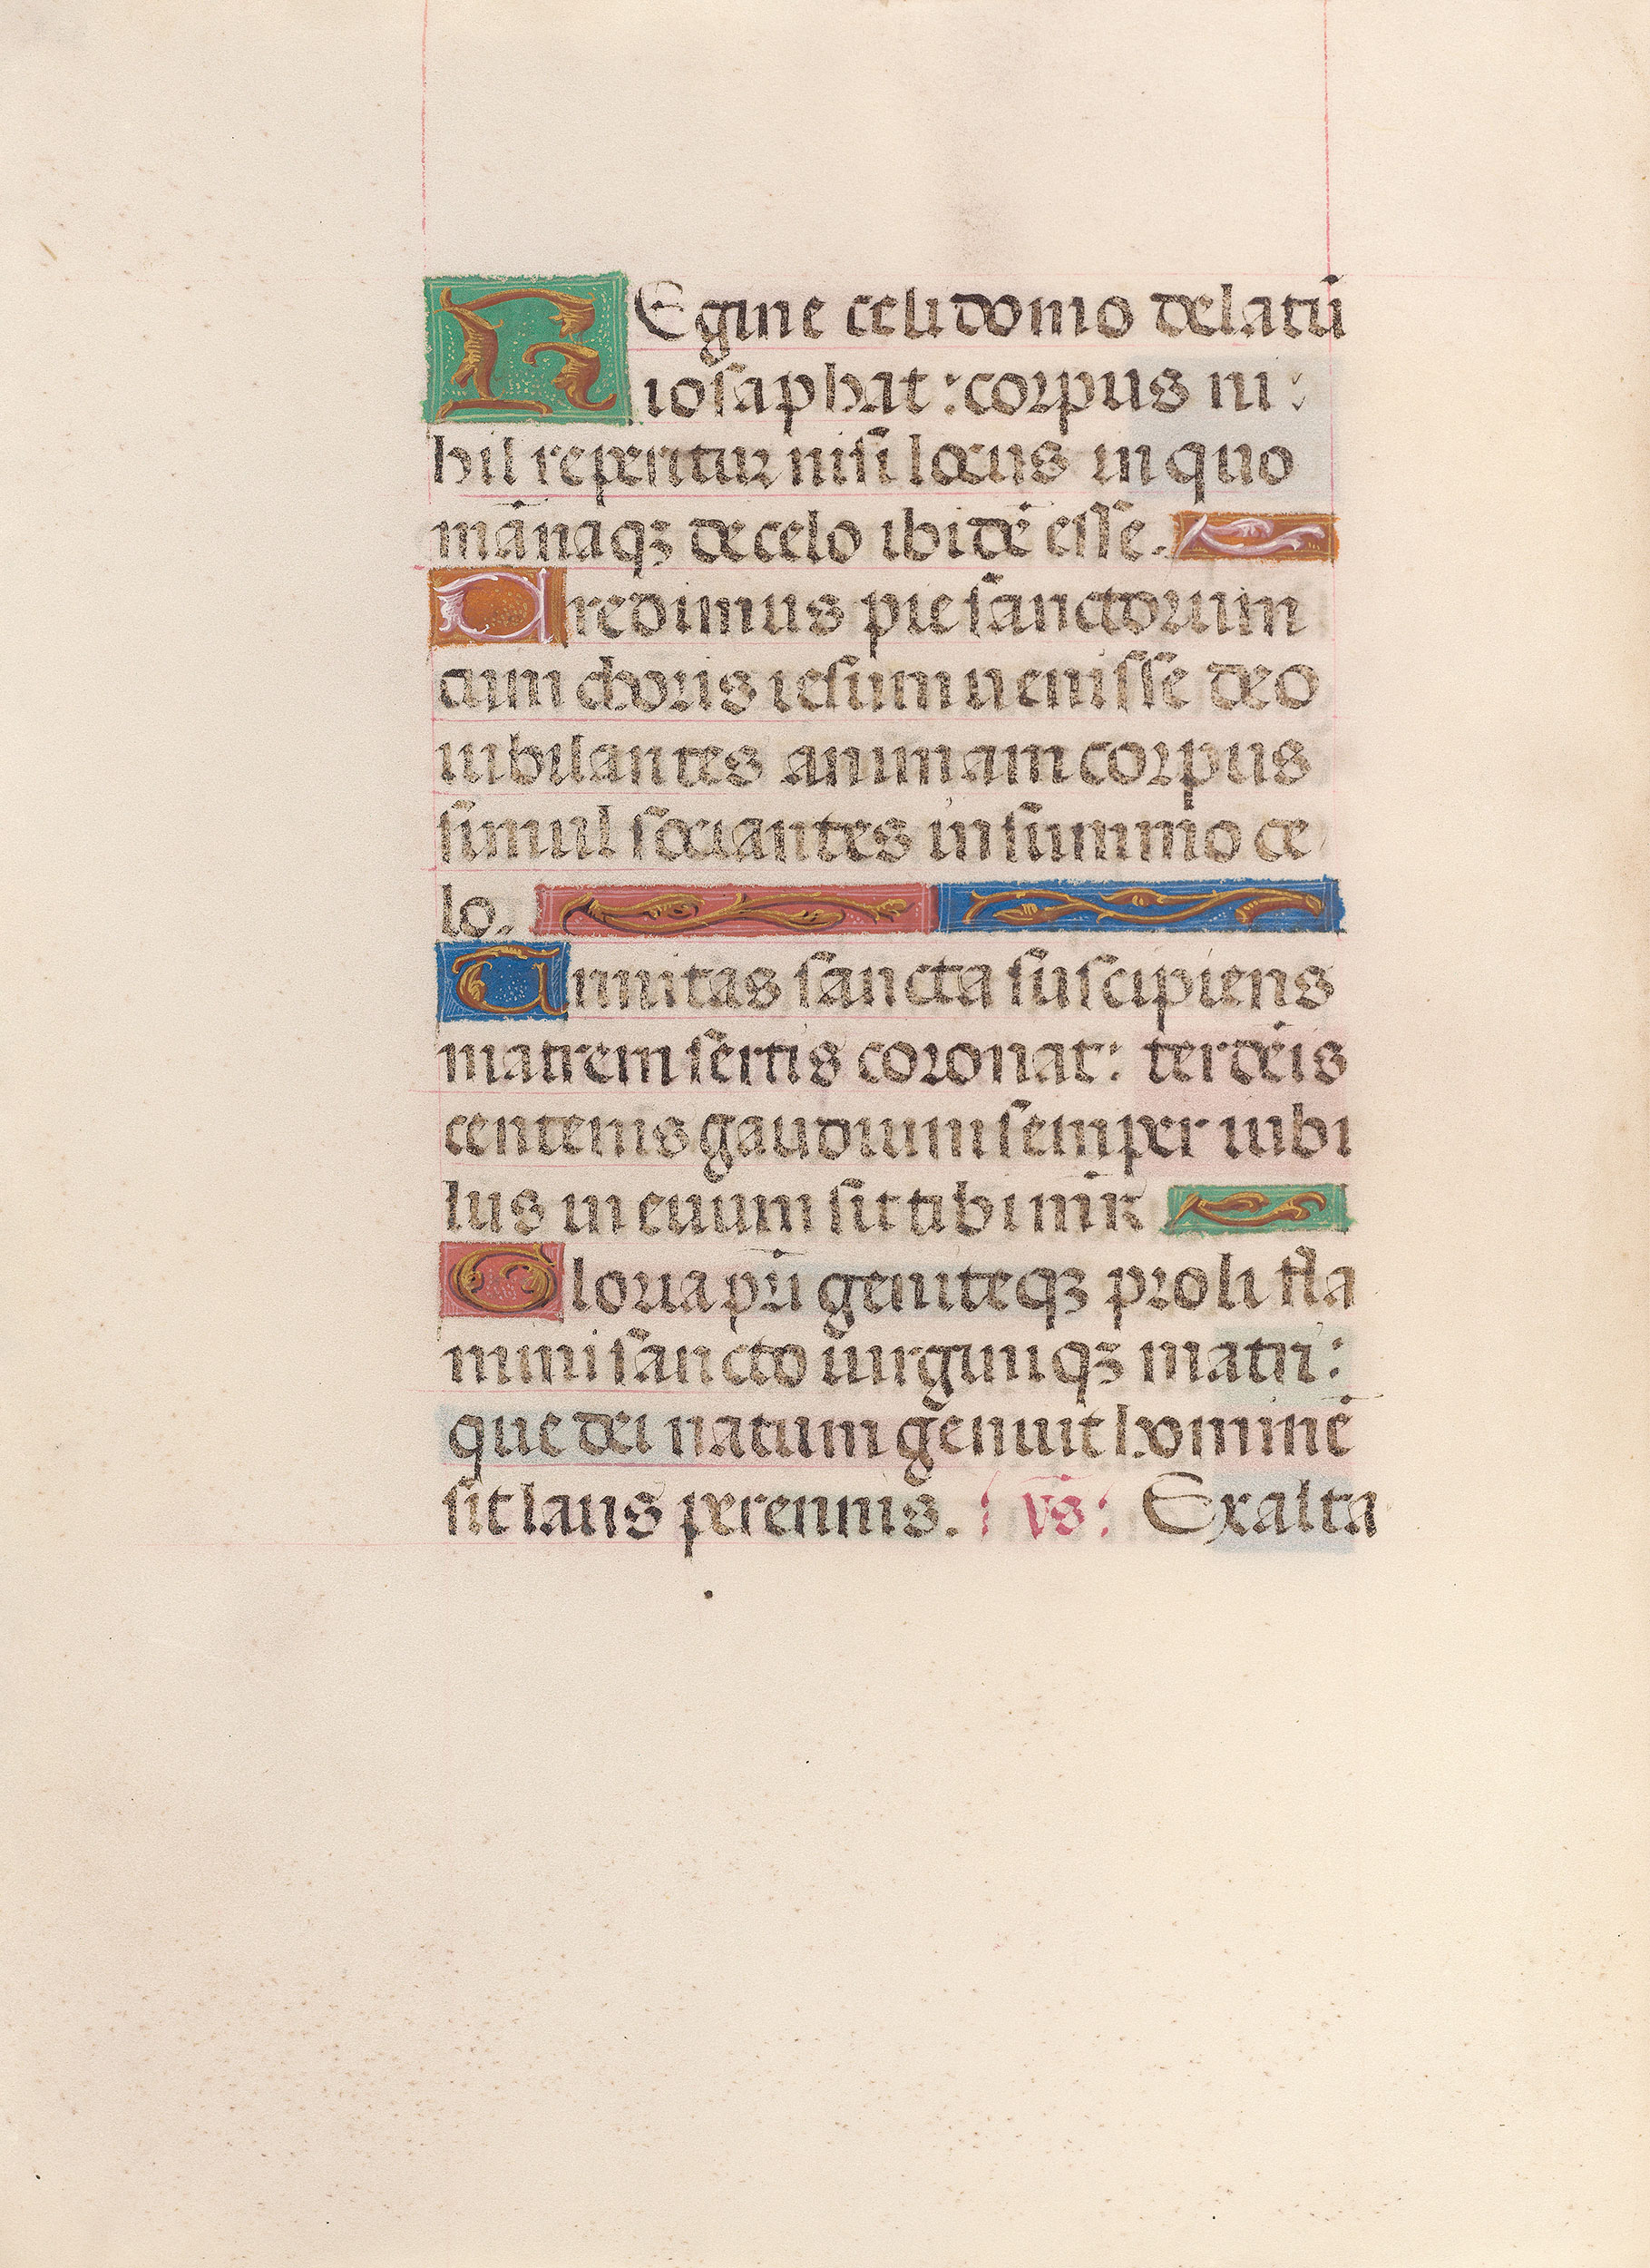 REgine celi domo delatū
iosaphat : corpus ni :
hil reperitur nisi locus in quo
mānaqꝫ de celo ibidē esse.
Credimus pie sanctorum
cum choris iesum uenisse deo
iubilantes animam corpus
simul sociantes in summo ce
lo.
Trinitas sancta suscipiens
matrem sertis coronat : ter deīs
centenis gaudium semper iubi
lus in euum sit tibi mīr
Gloria pr̄i geniteqꝫ proli fla
mini sancto uirginiqꝫ matri :
que dei natum genuit hominē
sit laus perennis. : vs : Exalta